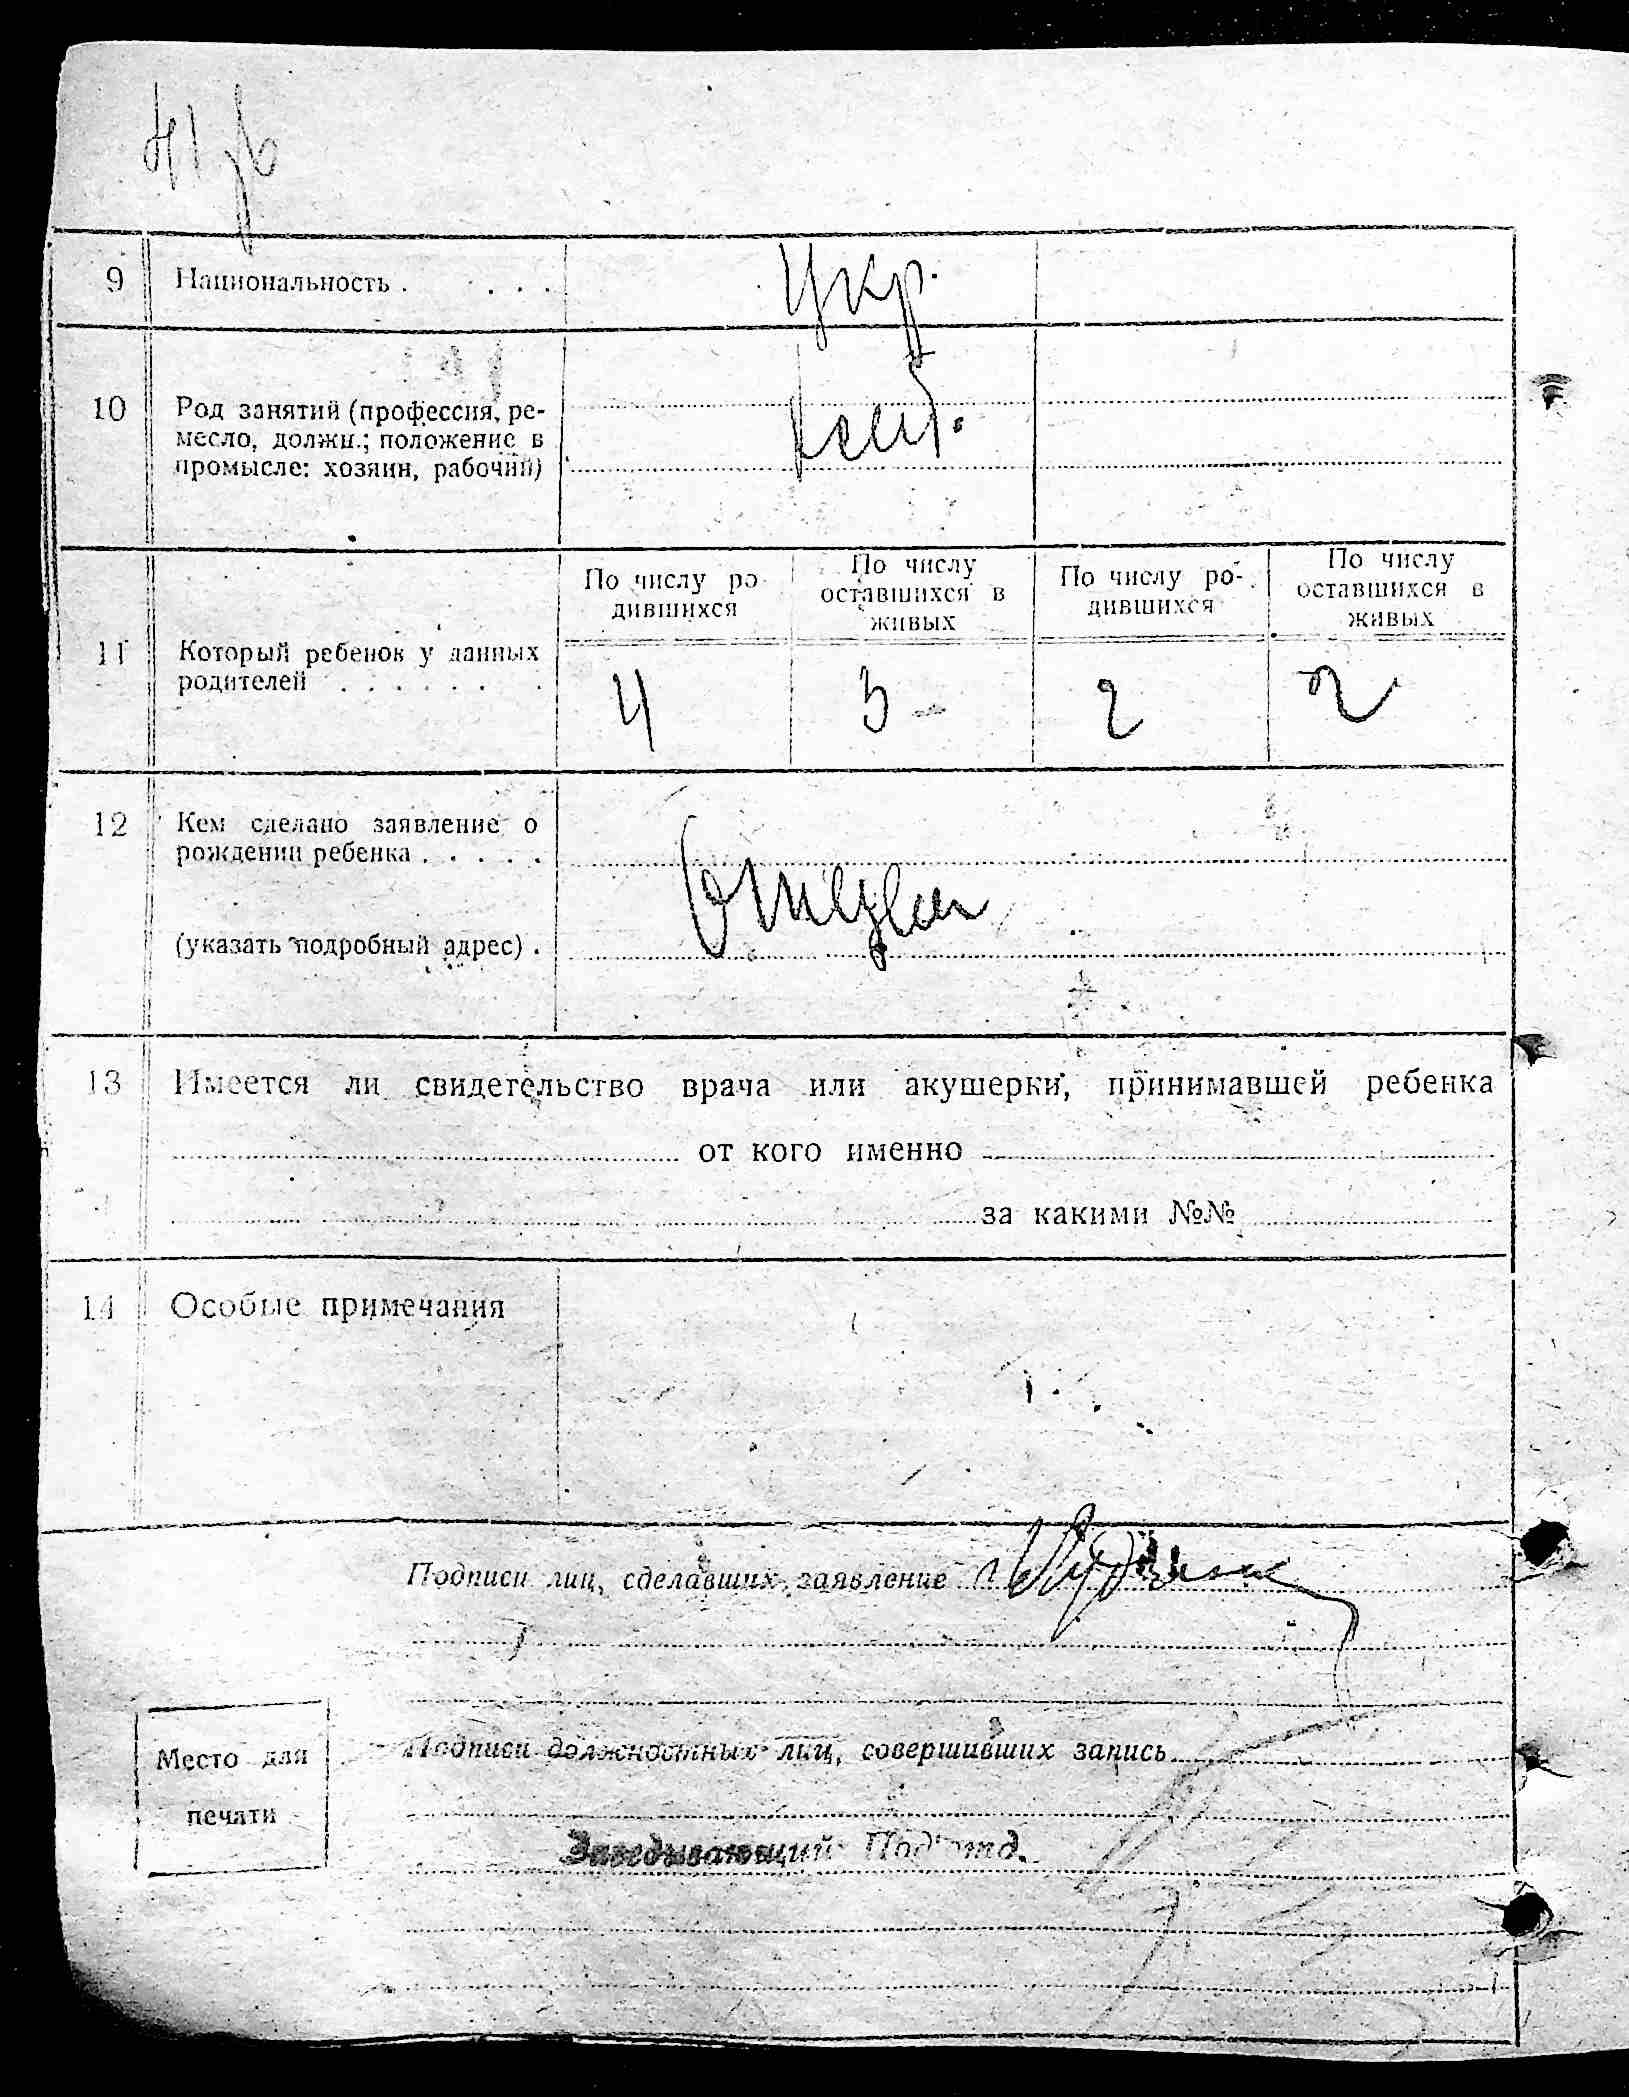 9 Национальность . . . . . Укр.
10 Род занятий (профессия, ре-
месло, должн.; положение в
промысле: хозяин, рабочий)
По числу ро-
дившихся
По числу
оставшихся в
живых
По числу ро-
дившихся
По числу
оставшихся в
живых
11 Который ребенок у данных
родителей . . . . . . . 4 3 2 2
12 Кем сделано заявление о
рождении ребенка . . . . .
Отцем
(указать подробный адрес) .
13 Имеется ли свидетельство врача или акушерки, принимавшей ребенка
от кого именно
за какими №№
14 Особые примечания
Подписи лиц, сделавших заявление
Подписи должностных лиц, совершивших запись
Место для
печати
Заведывающий Под'отд.